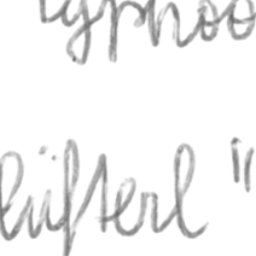 typhoo
lüfterl "